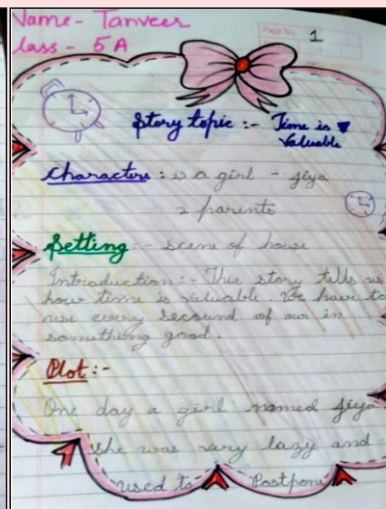 Name - Tanveer
lass - 5 A
Page No. 1
Story topic :- Time is
Valuable
Characters : is a girl - jiya
2 parents
Setting :- scene of house
Introduction :- This story tells us
how time is valuable. We have to
use every secound of our in
something good.
Plot :-
One day a girl named jiya
she was very lazy and
used to Postpone